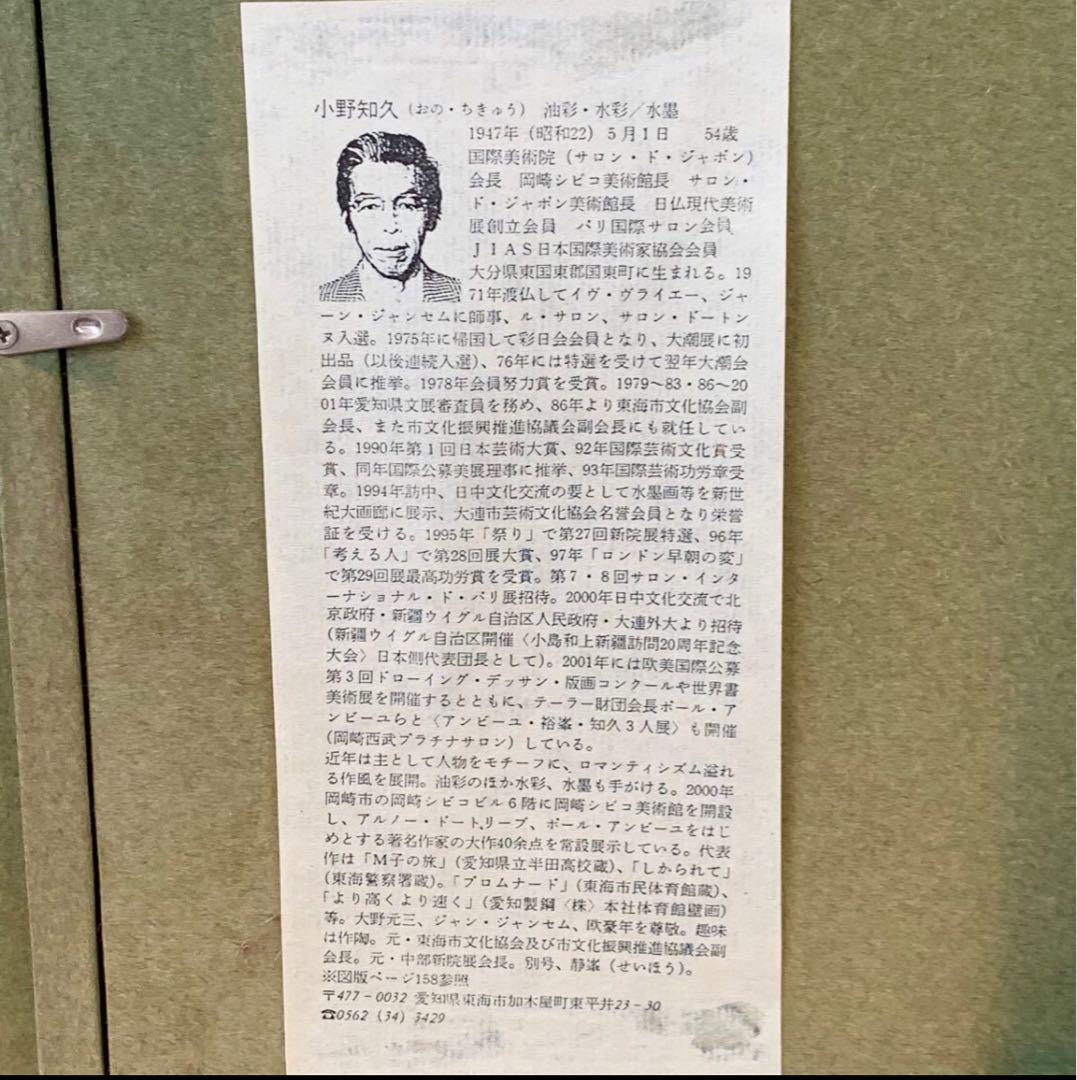 小野知久(おの・ちきゅう) 油彩・水彩/水墨
1947年(昭和22)5月1日 54歳
国際美術院(サロン・ド・ジャポン)
会長 岡崎シビコ美術館長 サロン・
ド・ジャポン美術館長 日仏現代美術
展創立会員 パリ国際サロン会員
JIAS日本国際美術家協会会員
大分県東国東郡国東町に生まれる。19
71年渡仏してイヴ・ヴライエー、ジャ
ーン・ジャンセムに師事、ル・サロン、サロン・ドートン
ヌ入選。1975年に帰国して彩日会会員となり、大潮展に初
出品(以後連続入選)、76年には特選を受けて翌年大潮会
会員に推挙。1978年会員努力賞を受賞。1979〜83・86〜20
01年愛知県文展審査員を務め、86年より東海市文化協会副
会長、また市文化振興推進協議会副会長にも就任してい
る。1990年第1回日本芸術大賞、92年国際芸術文化賞受
賞、同年国際公募美展理事に推挙、93年国際芸術功労章受
章。1994年訪中、日中文化交流の要として水墨画等を新世
紀大画廊に展示、大連市芸術文化協会名誉会員となり栄誉
証を受ける。1995年「祭り」で第27回新院展特選、96年
「考える人」で第28回展大賞、97年「ロンドン早朝の変」
で第29回展最高功労賞を受賞。第7・8回サロン・インタ
ーナショナル・ド・パリ展招待。2000年日中文化交流で北
京政府・新疆ウイグル自治区人民政府・大連外大より招待
(新疆ウイグル自治区開催〈小島和上新疆訪問20周年記念
大会〉日本側代表団長として)。2001年には欧美国際公募
第3回ドローイング・デッサン・版画コンクールや世界書
美術展を開催するとともに、テーラー財団会長ポール・ア
ンビーユらと〈アンビーユ・裕峯・知久3人展〉も開催
(岡崎西武プラチナサロン)している。
近年は主として人物をモチーフに、ロマンティシズム溢れ
る作風を展開。油彩のほか水彩、水墨も手がける。2000年
岡崎市の岡崎シビコビル6階に岡崎シビコ美術館を開設
し、アルノー・ドートリーブ、ポール・アンビーユをはじ
めとする著名作家の大作40余点を常設展示している。代表
作は「M子の旅」(愛知県立半田高校蔵)、「しかられて」
(東海警察署蔵)。「プロムナード」(東海市民体育館蔵)、
「より高くより速く」(愛知製鋼〈株〉本社体育館壁画)
等。大野元三、ジャン・ジャンセム、欧豪年を尊敬。趣味
は作陶。元・東海市文化協会及び市文化振興推進協議会副
会長。元・中部新院展会長。別号、静峯(せいほう)。
※図版ページ158参照
〒477-0032 愛知県東海市加木屋町東平井23-30
☎0562(34)3429